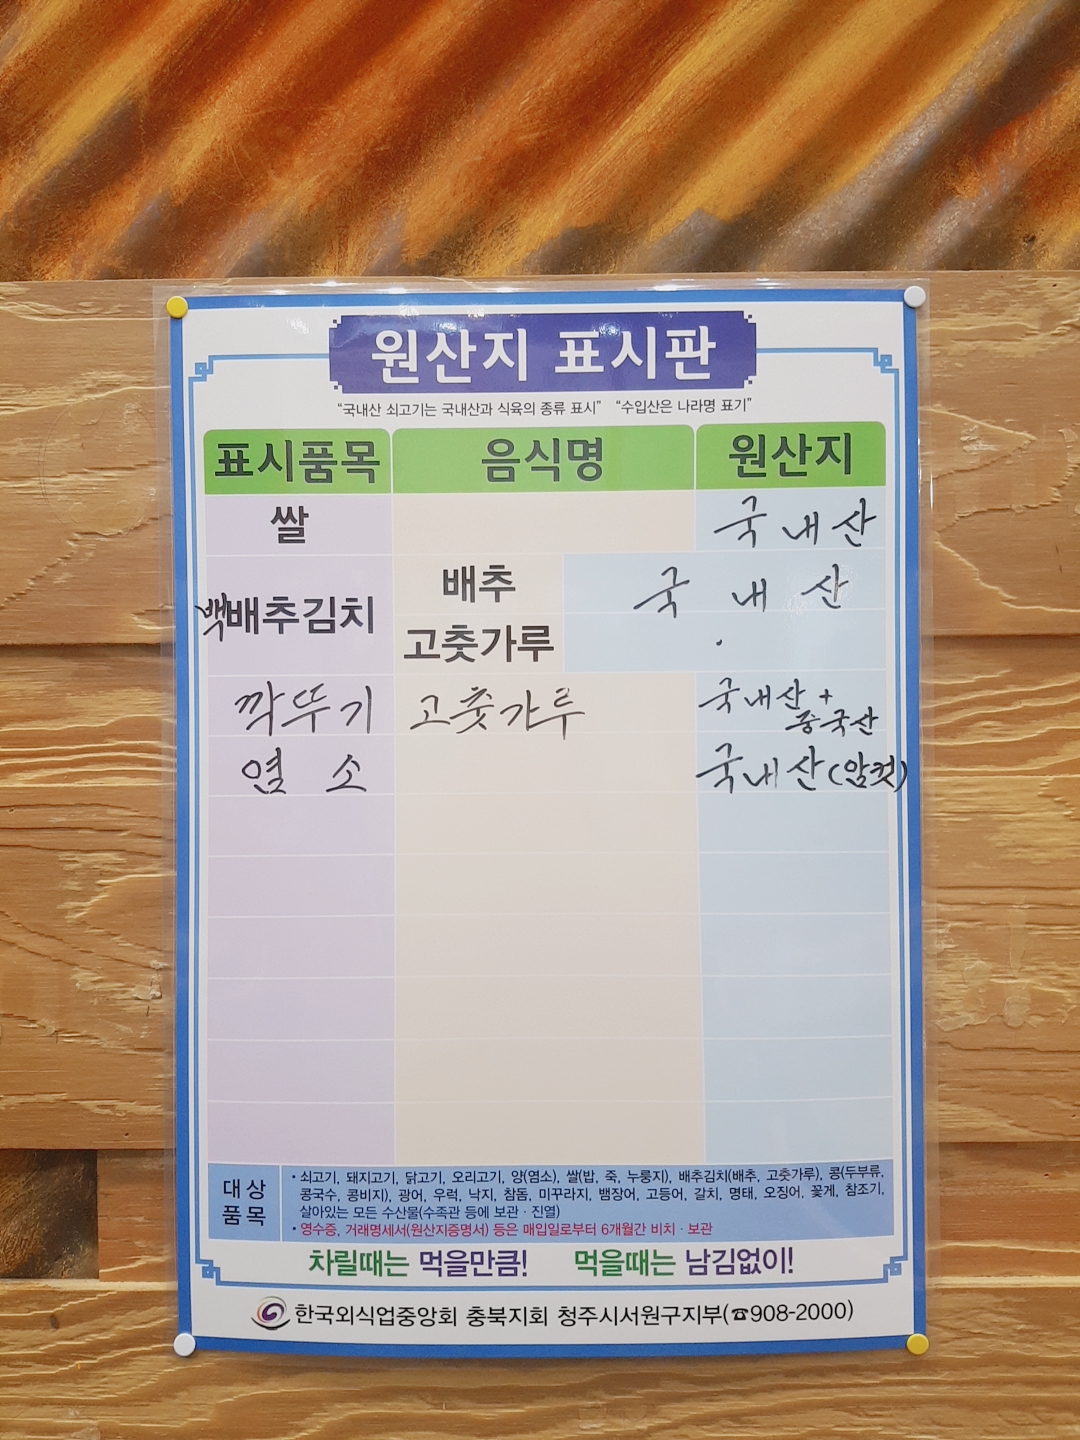 원산지 표시판
"국내산 쇠고기는 국내산과 식육의 종류 표시" "수입산은 나라명 표기"
표시품목 음식명 원산지
쌀 국내산
백배추김치 배추 국내산
고춧가루
깍뚜기 고춧가루 국내산+중국산
염소 국내산(암컷)
대상품목
• 쇠고기, 돼지고기, 닭고기, 오리고기, 양(염소), 쌀(밥, 죽, 누룽지), 배추김치(배추, 고춧가루), 콩(두부류,
콩국수, 콩비지), 광어, 우럭, 낙지, 참돔, 미꾸라지, 뱀장어, 고등어, 갈치, 명태, 오징어, 꽃게, 참조기,
살아있는 모든 수산물(수족관 등에 보관·진열)
• 영수증, 거래명세서(원산지증명서) 등은 매입일로부터 6개월간 비치·보관
차릴때는 먹을만큼! 먹을때는 남김없이!
한국외식업중앙회 충북지회 청주시서원구지부(☎908-2000)